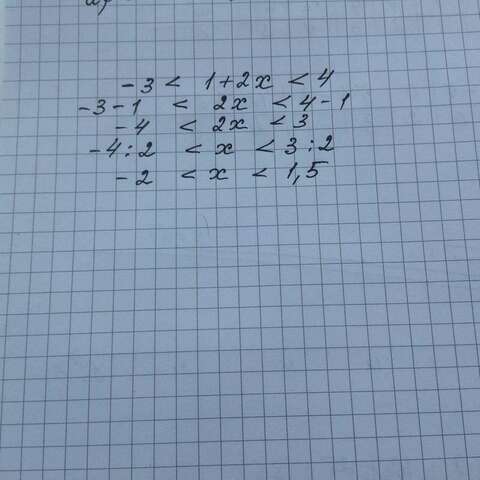 -3 < 1+2x < 4
-3-1 < 2x < 4-1
-4 < 2x < 3
-4:2 < x < 3:2
-2 < x < 1,5